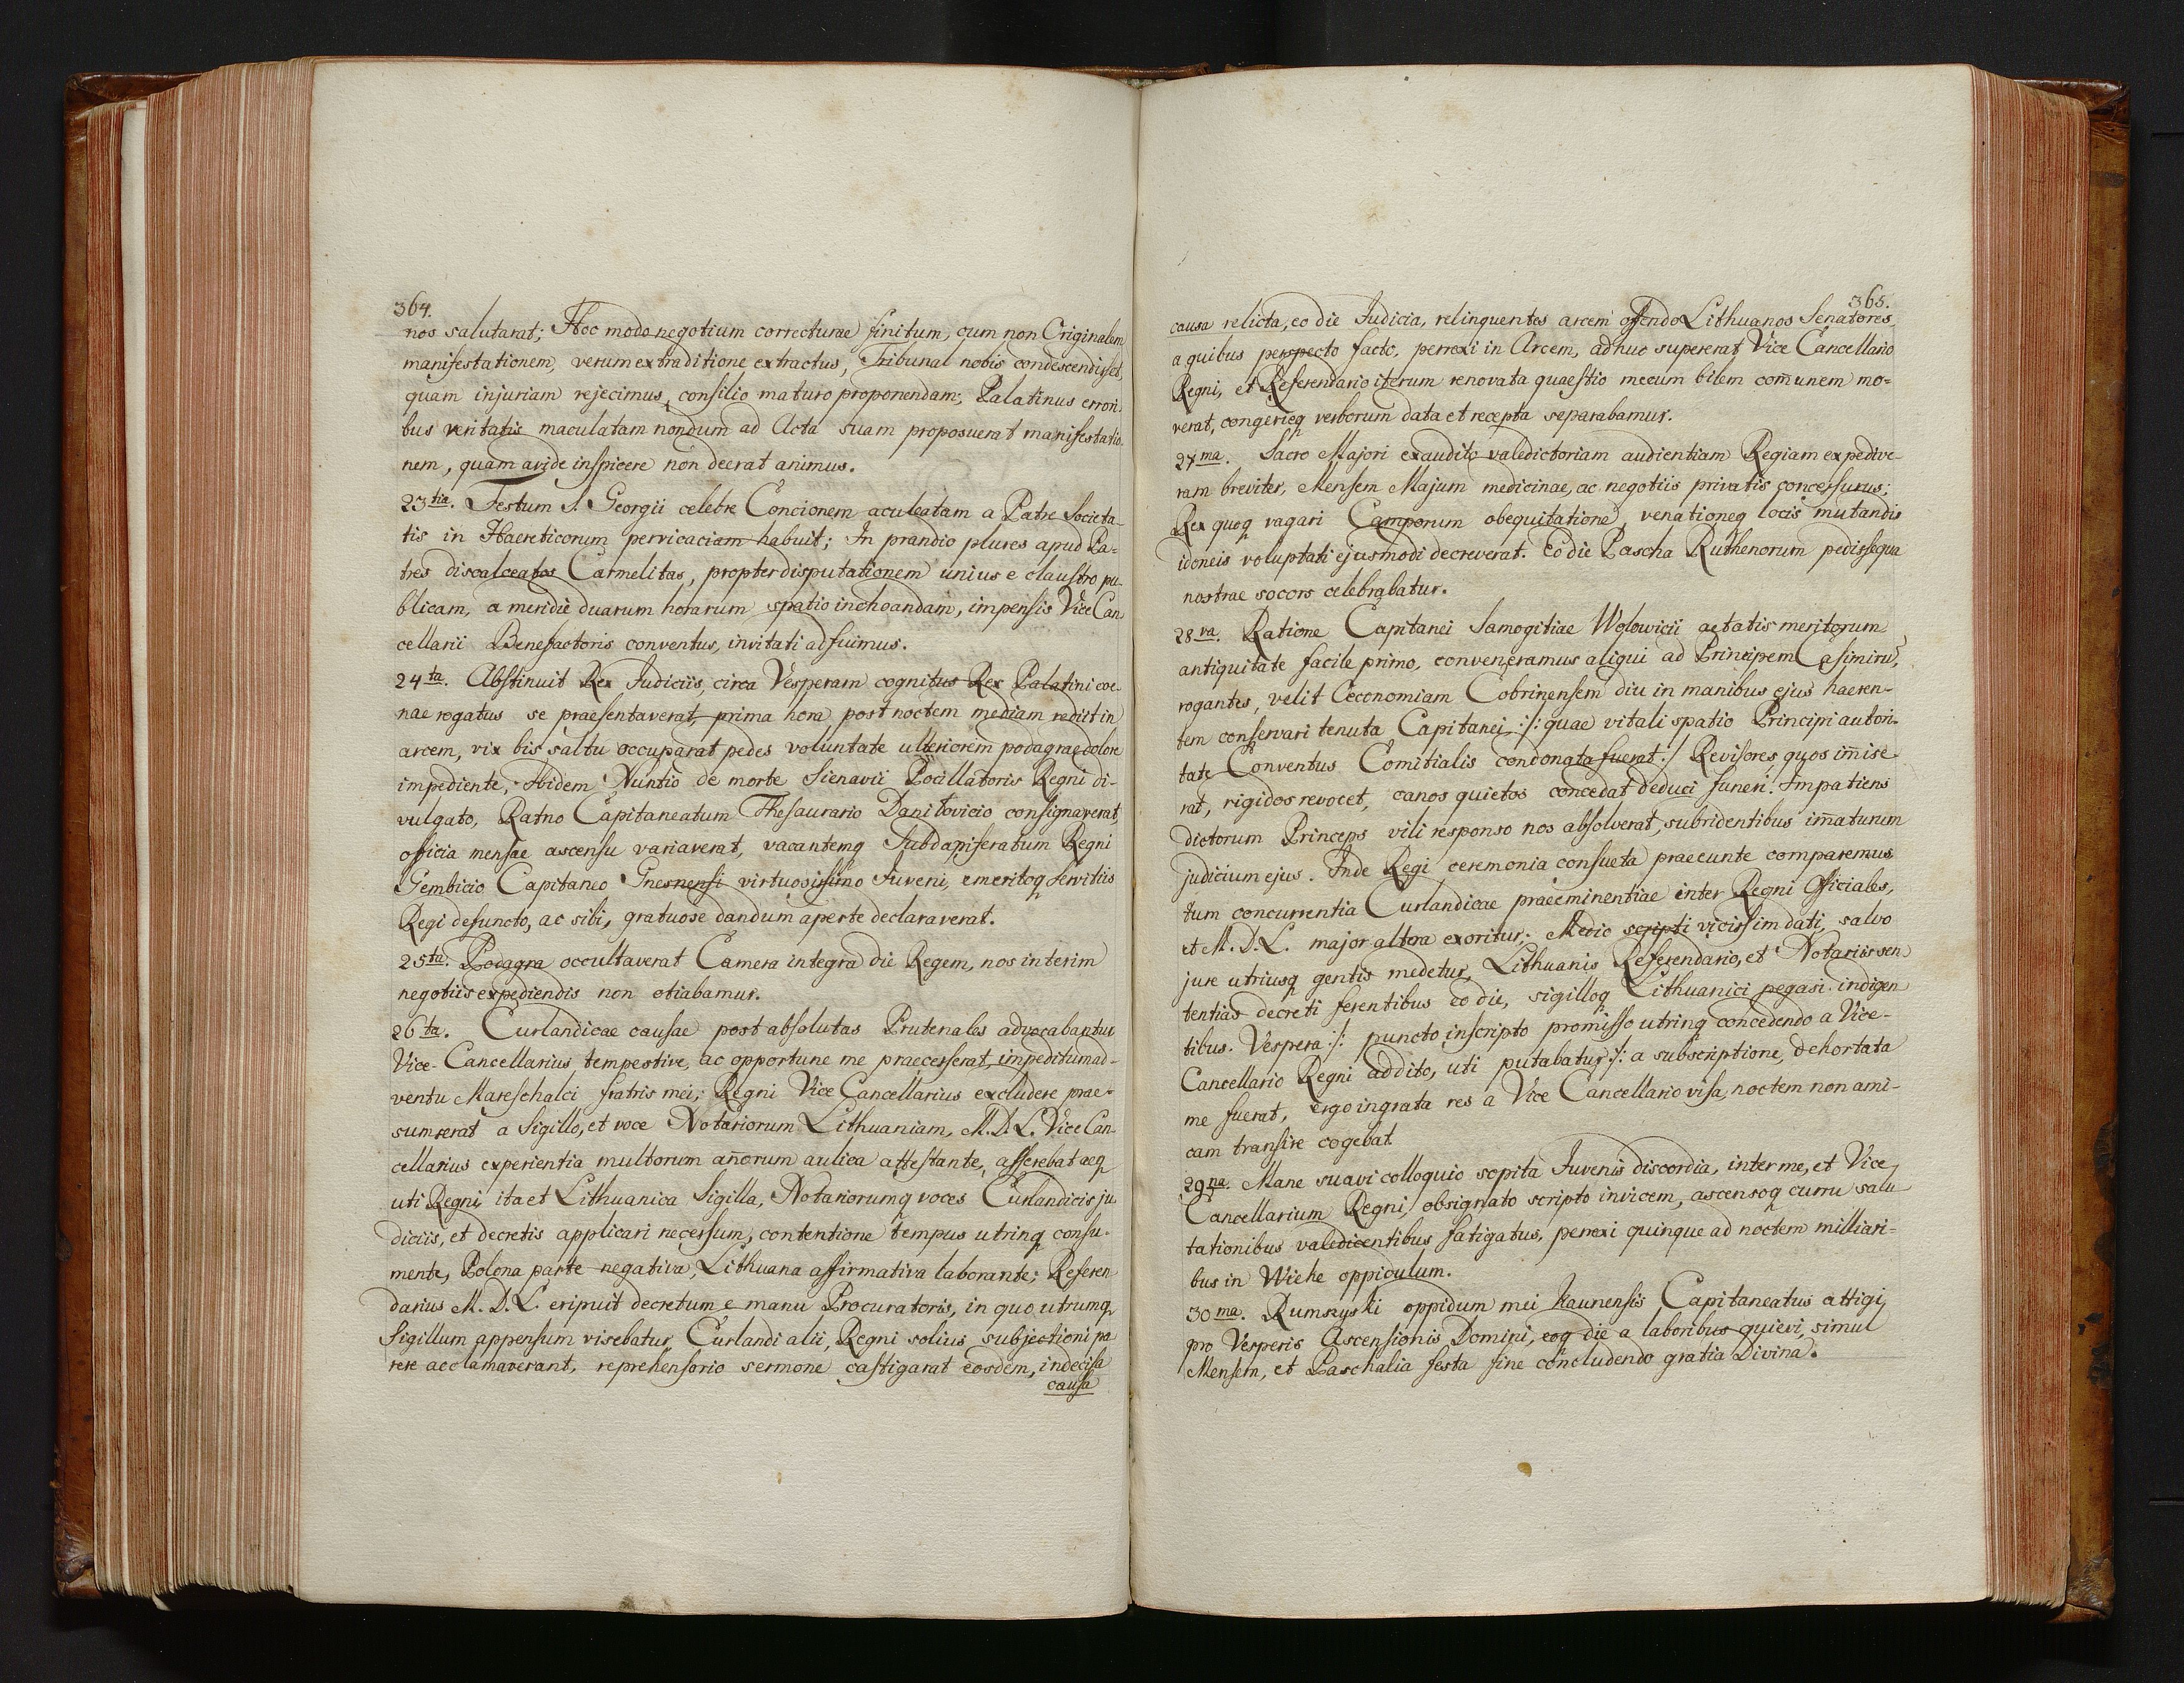 364.
nos salutarat; Hoc modo negotium correcturae finitum, cum non Originalem
manifestationem, verum ex traditione extractus, Tribunal nobis condescendisset,
quam injuriam rejecimus, consilio maturo proponendam; Palatinus errori
bus veritatis maculatam nondum ad Acta suam proposuerat manifestatio
nem, quam avide inspicere non deerat animus.
23tia. Festum S. Georgii celebre Concionem aculeatam a Patre Societa-
tis in Haereticorum pervicaciam habuit; In prandio plures apud Pa-
tres discalceatos Carmelitas, propter disputationem unius e claustro pu
blicam, a meridie duarum horarum spatio inchoandam, impensis Vice Can
cellarii Benefactoris conventus, invitati adfuimus.
24ta. Abstinuit Rex Judiciis, circa Vesperam cognitus Rex Palatini coe-
nae rogatus se praesentaverat, prima hora post noctem mediam rediit in
arcem, vix bis saltu occuparat pedes voluntate ulteriorem podagrae dolore
impediente; Ibidem Nuntio de morte Sienavii Pocillatoris Regni di-
vulgato, Ratno Capitaneatum Thesaurario Danilovicio consignaverat,
officia mensae ascensu variaverat, vacantemq Subdapiferatum Regni
Gembicio Capitaneo Gnesnensi virtuosissimo Juveni, emeritoq Servitiis
Regi defuncto, ac sibi, gratuose dandum aperte declaraverat.
25ta. Podagra occultaverat Camera integra die Regem, nos interim
negotiis expediendis non otiabamur.
26ta. Curlandicae causae post absolutas Prutenales advocabantur
Vice-Cancellarius tempestive, ac opportune me praecesserat, impeditum ad-
ventu Mareschalci fratris mei; Regni Vice Cancellarius excludere prae-
sumserat a Sigillo, et voce Notariorum Lithuaniam, M.D.L. Vice Can-
cellarius experientia multorum añorum aulica attestante, asserebat aeq
uti Regni, ita et Lithuanica Sigilla, Notariorumq voces Curlandicis ju
diciis, et decretis applicari necessum, contentione tempus utrinq consu-
mente, Polona parte negativa, Lithuana affirmativa laborante; Referen
darius M.D.L. eripuit decretum e manu Procuratoris, in quo utrumq
Sigillum appensum visebatur, Curlandi alii, Regni solius subjectioni pa
rere acclamaverant, reprehensorio sermone castigarat eosdem, indecisa
causa
365.
causa relicta, eo die Judicia, relinquentes arcem offendo Lithuanos Senatores,
a quibus perspecto facto, perrexi in Arcem, adhuc supererat Vice Cancellario
Regni, et Referendario iterum renovata quaestio mecum bilem com̃unem mo-
verat, congerieq verborum data et recepta separabamur.
27ma. Sacro Majori exaudito valedictoriam audientiam Regiam expedive-
ram breviter, Mensem Majum medicinae, ac negotiis privatis concessurus;
Rex quoq vagari Camporum obequitatione, venationeq locis mutandis
idoneis voluptati ejusmodi decreverat. Eo die Pascha Ruthenorum pedissequa
nostrae socors celebrabatur.
28va. Ratione Capitanei Samogitiae Wolowicii aetatis meritorum
antiquitate facile primo, conveneramus aliqui ad Principem Casimirũ,
rogantes, velit Oeconomiam Cobrinensem diu in manibus ejus haeren-
tem conservari tenuta Capitanei :/: quae vitali spatio Principi autori-
tate Conventus Comitialis condonata fuerat :/ Revisores quos im̃ise
rat, rigidos revocet, canos quietos concedat deduci funeri. Impatiens
dictorum Princeps vili responso nos absolverat, subridentibus im̃aturum
judicium ejus. Inde Regi ceremonia consueta praeeunte comparemus
tum concurrentia Curlandicae praeeminentiae inter Regni Officiales,
et M.D.L. major altera exoritur; Medio scripti vicissim dati, salvo
jure utriusq gentis medetur, Lithuanis Referendario, et Notariis sen
tentias decreti ferentibus eo die, sigilloq Lithuanici pegasi indigen
tibus. Vespera :/: puncto inscripto promisso utrinq concedendo a Vice-
Cancellario Regni addito, uti putabatur :/: a subscriptione, dehortata
me fuerat, ergo ingrata res a Vice Cancellario visa, noctem non ami-
cam transire cogebat.
29na. Mane suavi colloquio sopita Juvenis discordia, inter me, et Vice
Cancellarium Regni, obsignato scripto invicem, ascensoq curru salu
tationibus valedicentibus fatigatus, perrexi quinque ad noctem milliari-
bus in Wiehe oppidulum.
30ma. Rumszyski oppidum mei Kaunensis Capitaneatus attigi,
pro Vesperis Ascensionis Domini, eoq die a laboribus quievi, simul
Mensem, et Paschalia festa fine concludendo gratia Divina.